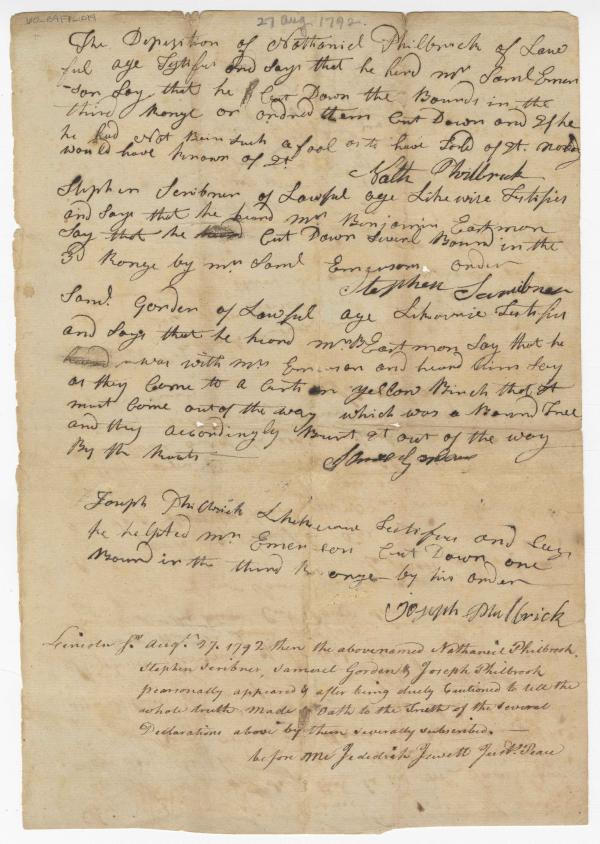 27 Aug. 1792.
The Deposition of Nathaniel Philbrick of Law
ful age Testifies and Says that he herd mr Saml Emer
-son Say that he Cut Down the Bounds in the
third Range or ordred them Cut Down and If he
he had Not Bein Such a fool as to have Told of It. nobody
would have known of It.
Nath Philbrick
Stephen Scribner of Lawful age Likewise Testifies
and Says that he heard mr Benjamin Eastmon
Say that he Cut Down Several Bound in the
3d Range by mr Saml Emerson order
Stephen Scribner
Saml. Gorden of Lawful age Likewise Testifies
and Says that he heard mr B Eastmon Say that he
was with mr Emerson and heard him Say
as they Come to a Certain yellow Birch that It
must Come out of the way which was a Bound Tree
and they accordingly Burnt It out of the way
By the Roots
Samel Gorden
Joseph Philbrick Likewise Testifies and Says
he helped mr Emerson Cut Down one
Bound in the third Range by his order
Joseph Philbrick
Lincoln Ss. Augt. 27. 1792 then the abovenamed Nathaniel Philbrook,
Stephen Scribner, Samuel Gorden & Joseph Philbrook
pearsonally appeared & after being duely Cautioned to tell the
whole truth made Oath to the Truth of the Several
Declarations above by them severally subscribed.
before me Jedediah Jewett Just. Peace